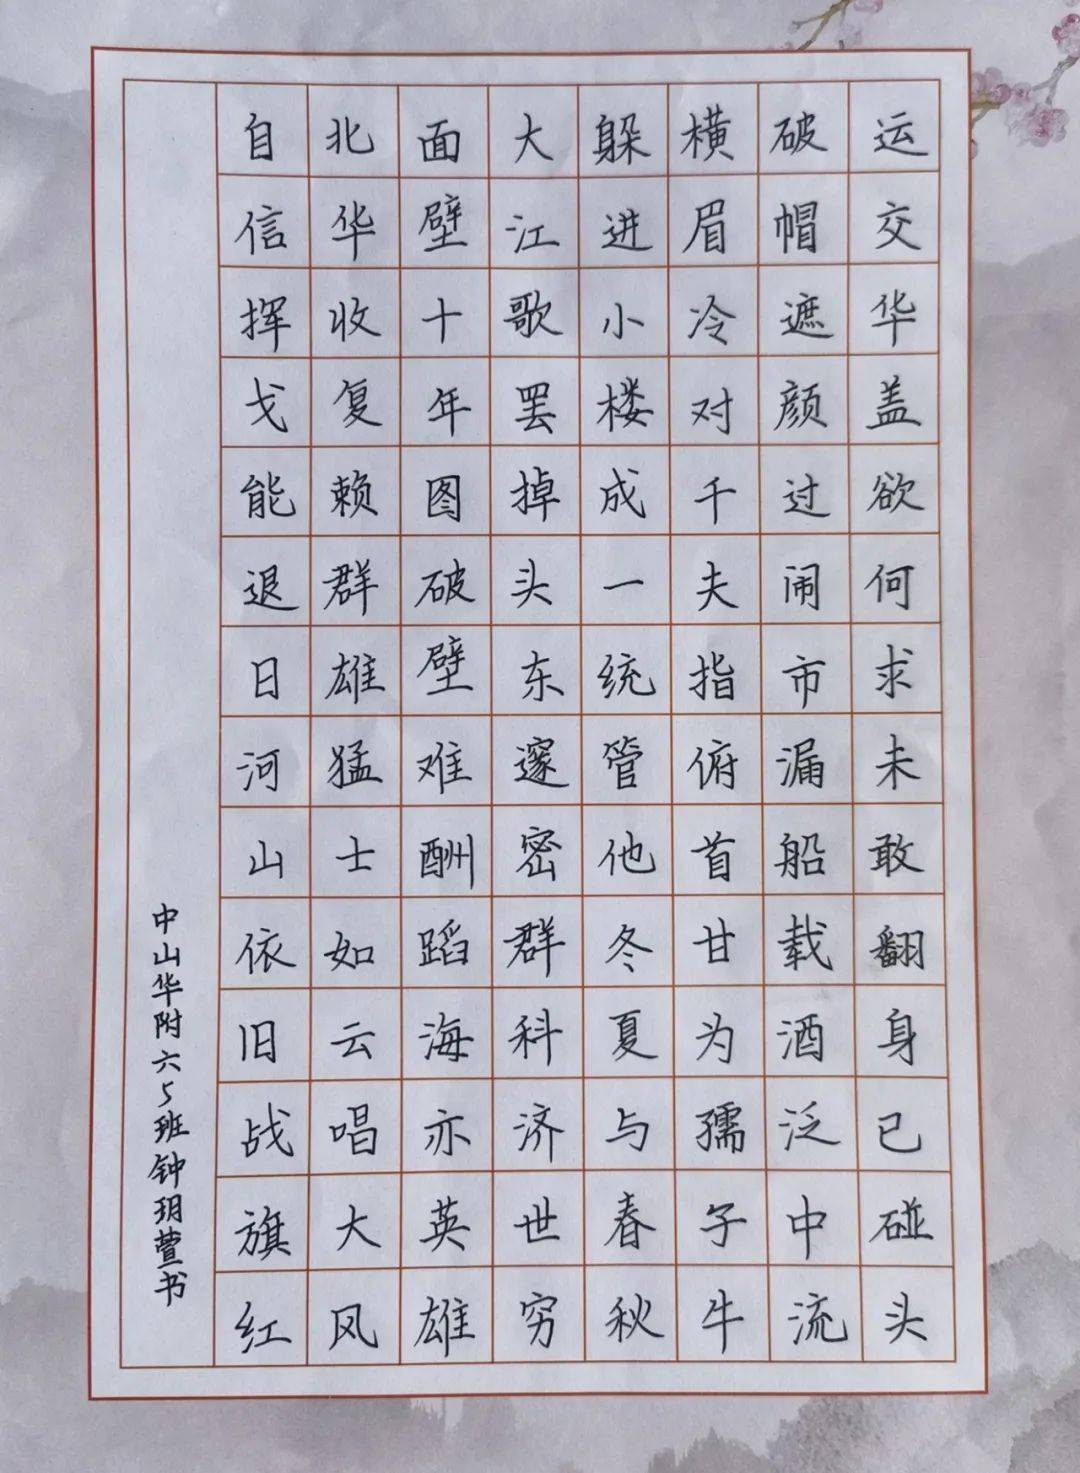 运交华盖欲何求未敢翻身已碰头
破帽遮颜过闹市漏船载酒泛中流
横眉冷对千夫指俯首甘为孺子牛
躲进小楼成一统管他冬夏与春秋
大江歌罢掉头东邃密群科济世穷
面壁十年图破壁难酬蹈海亦英雄
北华收复赖群雄猛士如云唱大风
自信挥戈能退日河山依旧战旗红
中山华附六5班钟玥萱书